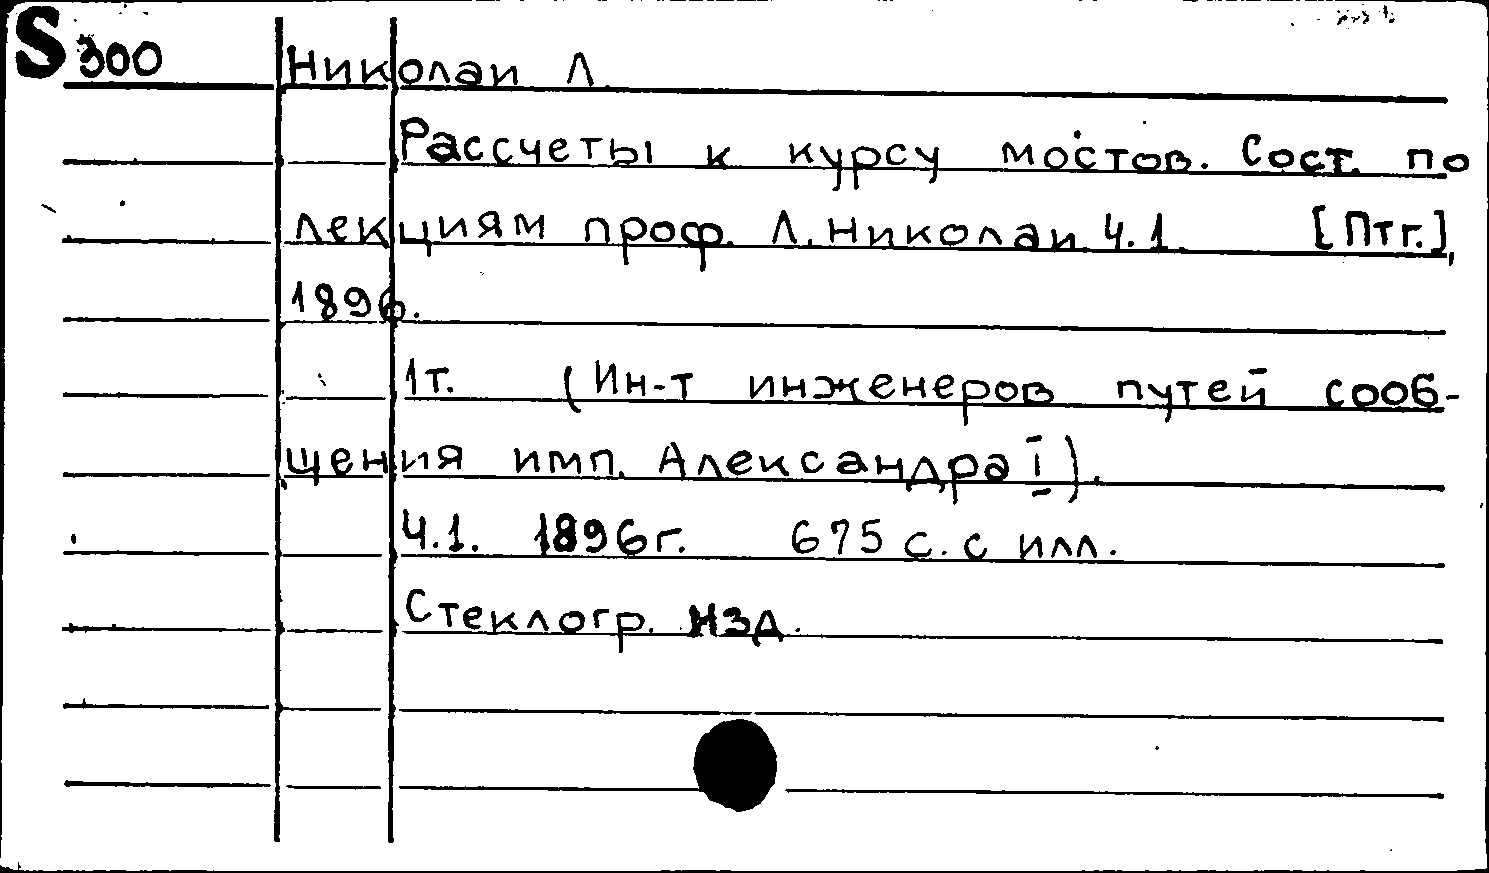 S 300 Николаи Л.
Рассчеты к курсу мостов. Сост. по
лекциям проф. Л. Николаи Ч.1. [Птг.],
1896.
1т. (Ин-т инженеров путей сооб-
щения имп. Александра I).
Ч.1. 1896г. 675 с. с илл.
Стеклогр. изд.